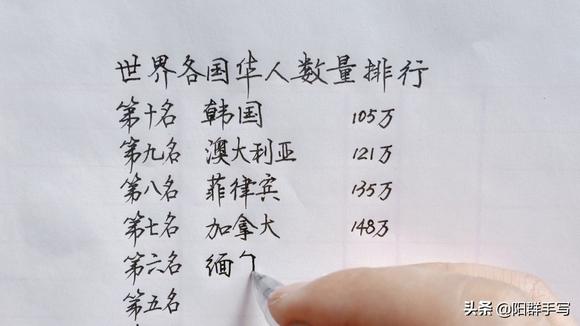 世界各国华人数量排行
第十名 韩国 105万
第九名 澳大利亚 121万
第八名 菲律宾 135万
第七名 加拿大 148万
第六名 缅
第五名
头条 @阳群手写